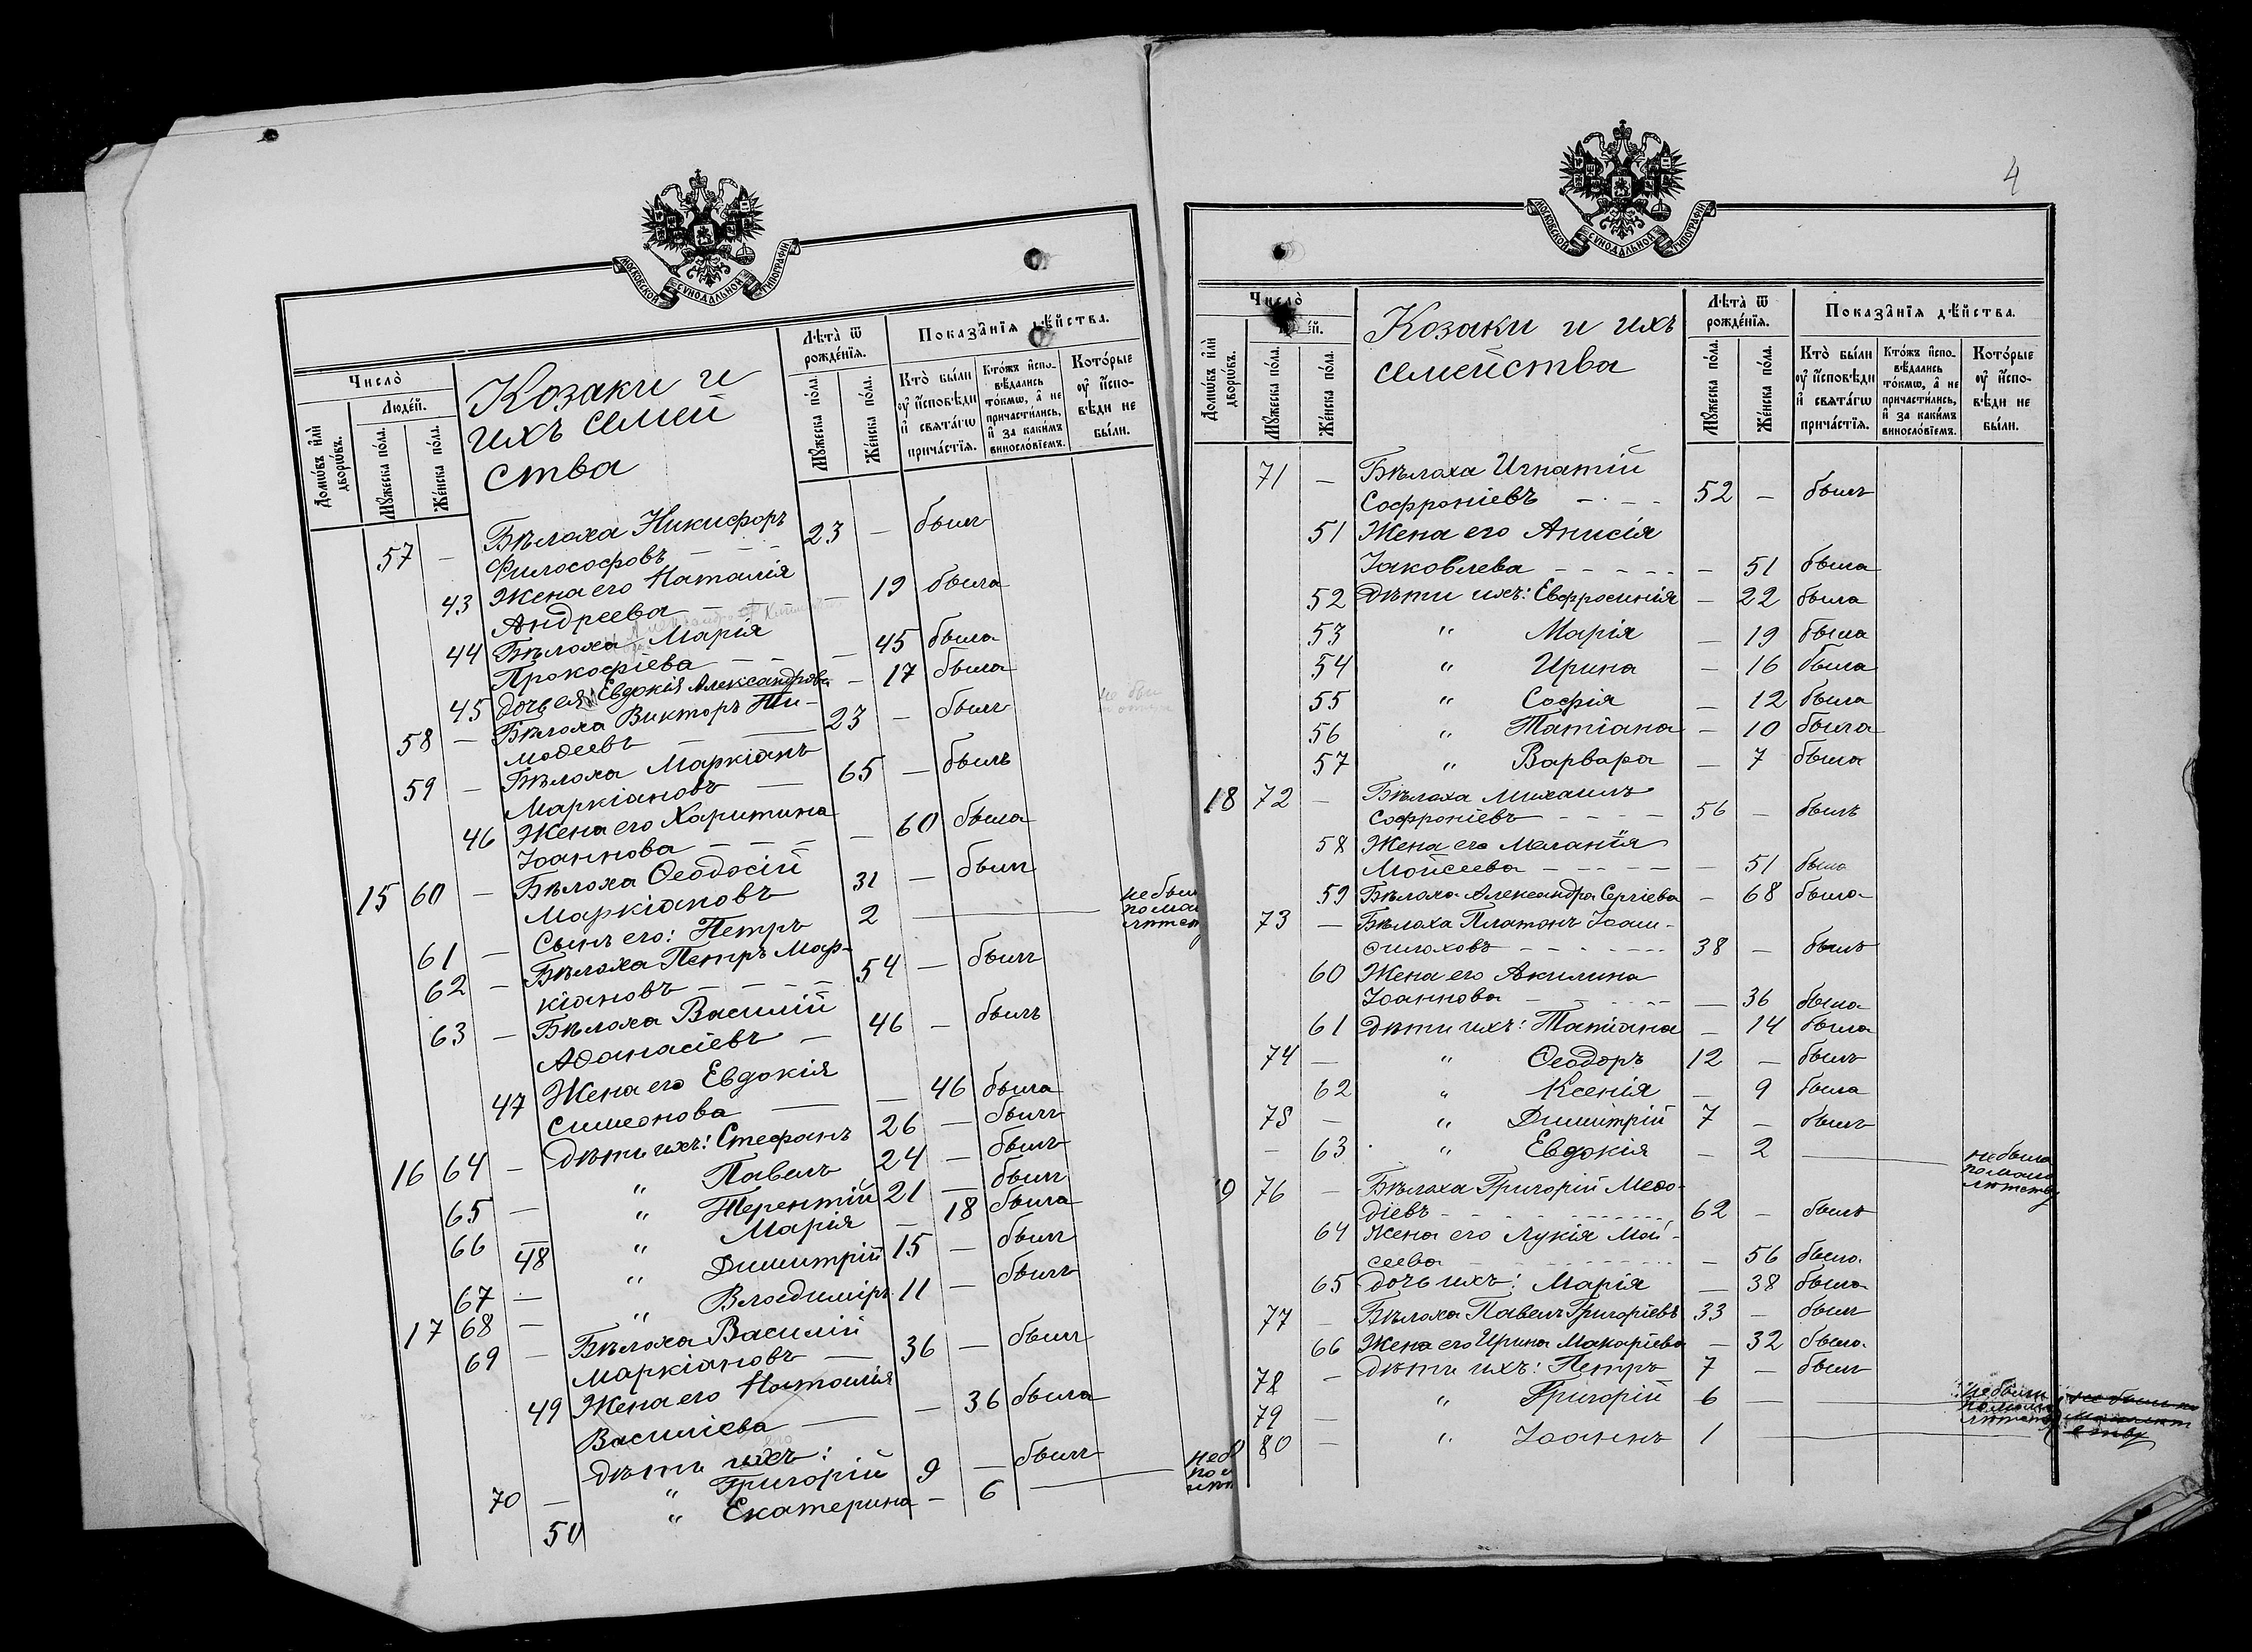 МОСКОВСКОЙ СѴНОДАЛЬНОЙ ТИПОГРАФІИ
Число̀
Люде́й.
Домѡ́въ и҆лѝ дворѡ́въ.
Мꙋ́жеска по́ла.
Же́нска по́ла.
Козаки и
ихъ семей
ства
Лѣта̀ ѿ рожде́нїѧ.
Мꙋ́жеска по́ла.
Же́нска по́ла.
Показа̑нїѧ дѣ́йства.
Кто̀ бы́ли ᲂу҆ и҆спо́вѣди и҆ свѧта́гѡ прича́стїѧ.
Кто́жъ и҆спо-вѣ́дались то́кмѡ, а҆ не причасти́лись, и҆ за каки́мъ виносло́вїемъ.
Кото́рые ᲂу҆ и҆спо-вѣди не бы́ли.
57 — Бѣлоха Никифоръ
Философовъ — — 23 — былъ
43 Жена его Наталія
Андреева — — — 19 была
44 Бѣлоха Марія
Прокофіева — — — 45 была
45 дочь ея: Евдокія Александрова — 17 была
58 — Бѣлоха Викторъ Ти-
моѳеевъ — — 23 — былъ
59 — Бѣлоха Маркіанъ
Маркіановъ — 65 — былъ
46 Жена его Харитина
Іоаннова — — — — 60 была
15 60 — Бѣлоха Ѳеодосій
Маркіановъ 31 — былъ
61 — Сынъ его: Петръ 2 — не был
по мал
лѣтст
62 — Бѣлоха Петръ Мар-
кіановъ — — — 54 — былъ
63 — Бѣлоха Василій
Аѳанасіевъ — 46 — былъ
47 Жена его Евдокія
Симеонова — — 46 была
16 64 — Дѣти ихъ: Стефанъ 26 — былъ
65 — " Павелъ 24 — былъ
66 — " Терентій 21 — былъ
48 " Марія — 18 была
67 — " Димитрій 15 — былъ
17 68 — " Владиміръ 11 — былъ
69 — Бѣлоха Василій
Маркіановъ — 36 — былъ
49 Жена его Наталія
Василіева — — 36 была
Дѣти ихъ:
70 — " Григорій 9 — былъ
50 " Екатерина — 6 —
4
МОСКОВСКОЙ СѴНОДАЛЬНОЙ ТИПОГРАФІИ
Число̀
Домѡ́въ и҆лѝ дворѡ́въ.
Мꙋ́жеска по́ла.
Же́нска по́ла.
Козаки и ихъ
семейства
Лѣта̀ ѿ рожде́нїѧ.
Мꙋ́жеска по́ла.
Же́нска по́ла.
Показа̑нїѧ дѣ́йства.
Кто̀ бы́ли ᲂу҆ и҆спо́вѣди и҆ свѧта́гѡ прича́стїѧ.
Кто́жъ и҆спо-вѣ́дались то́кмѡ, а҆ не причасти́лись, и҆ за каки́мъ виносло́вїемъ.
Кото́рые ᲂу҆ и҆спо-вѣди не бы́ли.
71 — Бѣлоха Игнатій
Софроніевъ — — — 52 — былъ
51 Жена его Анисія
Іаковлева — — — — — — 51 была
52 Дѣти ихъ: Евфросинія — 22 была
53 " Марія — 19 была
54 " Ирина — 16 была
55 " Софія — 12 была
56 " Татіана — 10 была
57 " Варвара — 7 была
18 72 — Бѣлоха Михаилъ
Софроніевъ — — — — 56 — былъ
58 Жена его Меланія
Мойсеева — — — — — 51 была
59 Бѣлоха Александра Сергіева — 68 была
73 — Бѣлоха Платонъ
38 — былъ
60 Жена его Акилина
Іоаннова — — — 36 была
61 Дѣти ихъ: Татіана — 14 была
74 — " Ѳеодоръ 12 — былъ
62 " Ксенія — 9 была
75 — " Димитрій 7 — былъ
63 " Евдокія — 2 — не была
по мало
лѣтству
19 76 — Бѣлоха Григорій Меѳо-
діевъ — — — — 62 — былъ
64 Жена его Лукія Мой-
сеева — — — — 56 была
65 Дочь ихъ: Марія — 38 была
77 — Бѣлоха Павелъ Григоріевъ 33 — былъ
66 Жена его Ирина Макаріева — 32 была
78 — Дѣти ихъ: Петръ 7 — былъ
79 " Григорій 6 — не были
по мало
лѣтству
80 — " Іоаннъ 1 —